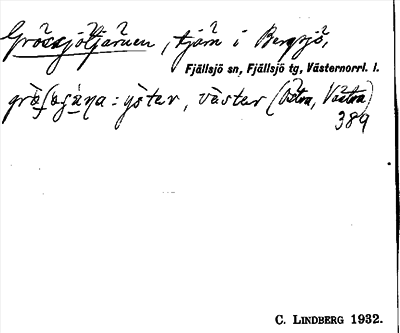 Grössjötjärnen, tjärn i Bergsjö,
Fjällsjö sn, Fjällsjö tg, Västernorrl. l.
: yster, väster (Östra, Västra)
389
C. LINDBERG 1932.